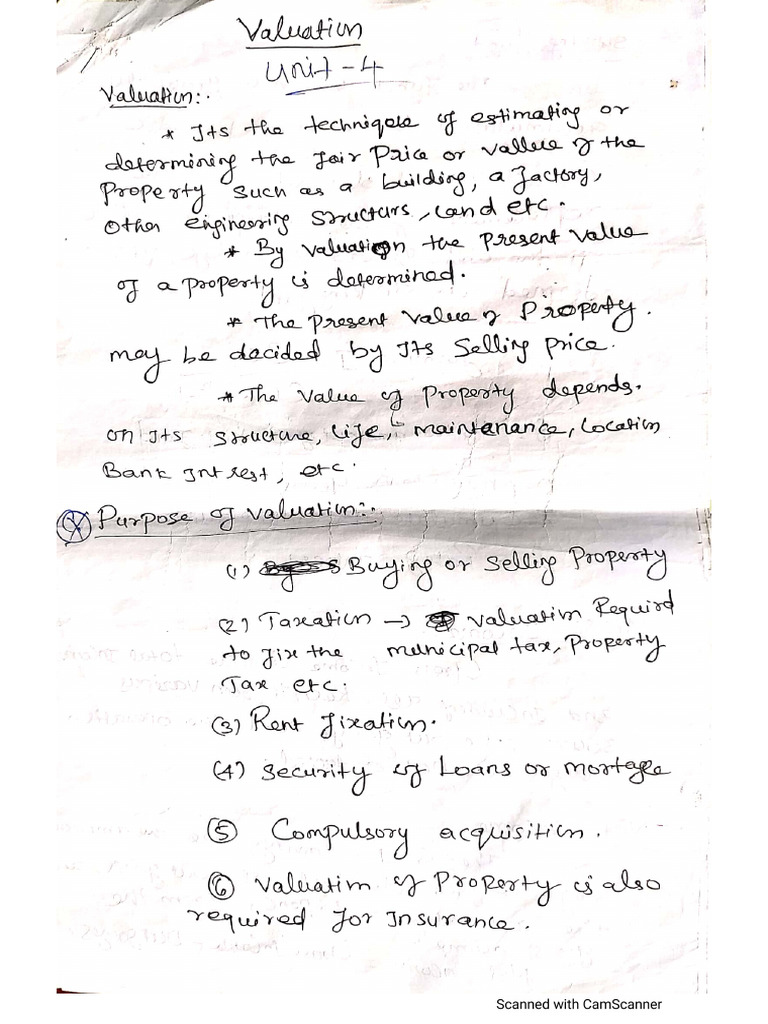 Valuation
Unit-4
Valuation:-
* Its the techniqele of estimating or
determining the fair Price or vallue of the
Property such as a building, a factory,
Other engineering structurs, land etc.
* By valuation the present value
of a property is determined.
* The present value of Property.
may be decided by Its selling price.
* The value of property depends.
on Its structure, life, maintenance, location
Bank Intrest, etc.
Purpose of valuation:-
(1) Buying or selling Property
(2) Taxation → valuation Requird
to fix the municipal tax, Property
Tax etc.
(3) Rent fixation.
(4) security of Loans or mortage
⑤ Compulsory acquisition.
⑥ valuation of Property is also
required for Insurance.
Scanned with CamScanner